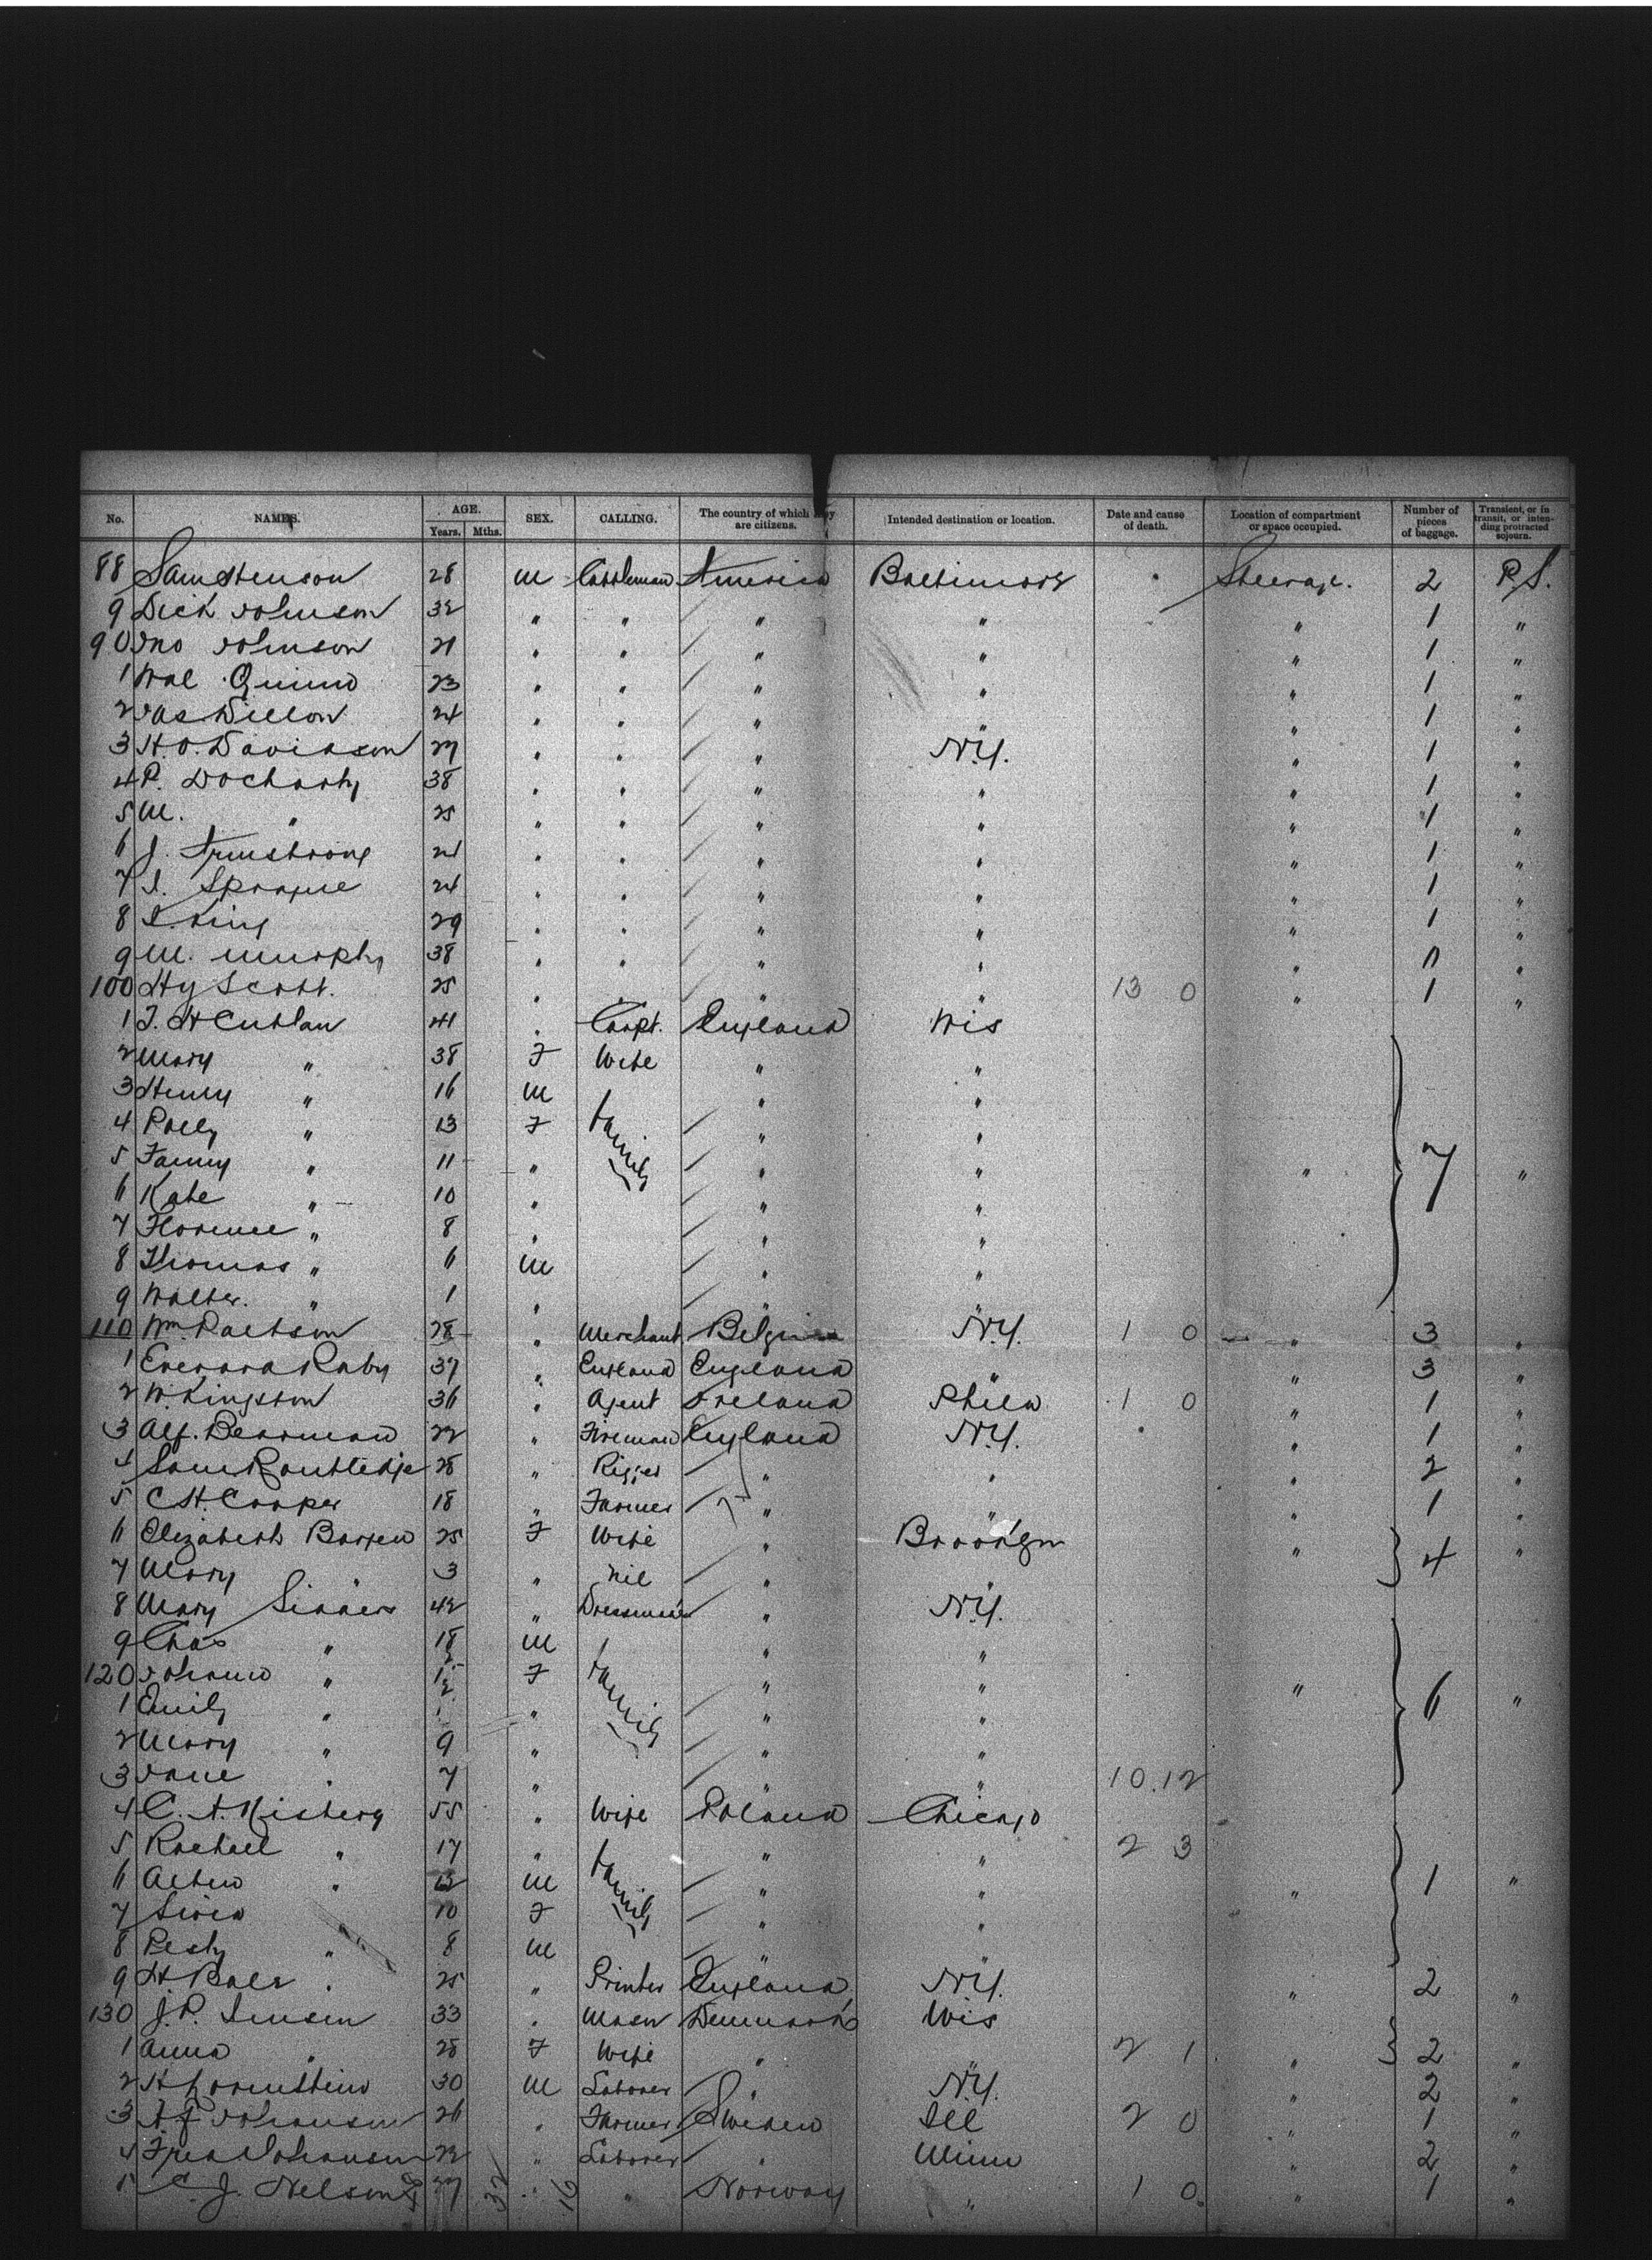 No. NAMES. AGE. Years. Mths. SEX. CALLING. The country of which they are citizens. Intended destination or location. Date and cause of death. Location of compartment or space occupied. Number of pieces of baggage. Transient, or in transit, or intending protracted sojourn.
88 Sam Stenson 28 M Cattleman America Baltimore Steerage. 2 P.S.
9 Dick Johnson 32 " " " " " 1 "
90 Jno Johnson 21 " " " " " 1 "
1 Wal Quinn 23 " " " " " 1 "
2 Jas Dillon 24 " " " " " 1 "
3 H. O. Davidson 27 " " " N.Y. " 1 "
4 P. Docharty 38 " " " " " 1 "
5 M. " 25 " " " " 1 "
6 J. Armstrong 21 " " " " " 1 "
7 J. Sprague 24 " " " " " 1 "
8 S. King 29 " " " " " 1 "
9 M. Murphy 38 " " " " " "
100 Hy Scott. 25 " " " " 13 0 " 1 "
1 41 " Carpt. England Wis
2 Mary " 38 F Wife " "
3 Henry " 16 M " "
4 Polly " 13 F Family " "
5 Fanny " 11 " " " " 7 "
6 Kate " 10 " " "
7 Florence " 8 " " "
8 Thomas " 6 M " "
9 Walter. " 1 " " "
110 Wm. 28 " Merchant Belgium N.Y. 1 0 " 3 "
1 Everard Raby 37 " England England " " 3 "
2 W. Kingston 36 " Agent Ireland Phila 1 0 " 1 "
3 Alf. Bearman 22 " Fireman England N.Y. " 1 "
4 Sam Routledge 28 " Rigger " " " 2 "
5 C. H. Cooper 18 " Farmer " " " 1 "
6 Elizabeth 25 F Wife " Brooklyn " 4 "
7 Mary " 3 " Nil " "
8 Mary 42 " Dressmaker " N.Y.
9 Chas " 18 M " "
120 " F Family " " " 6 "
1 Emily " " " "
2 Mary " 9 " " "
3 Jane " 7 " " " 10.12
4 55 " Wife Poland Chicago
5 Rachell " 17 " Family " " 2 3
6 " M " " " 1 "
7 10 F " "
8 " 8 M " "
9 25 " Printer England N.Y. " 2 "
130 J. P. Jensen 33 " Mason Denmark Wis
1 Anna " 28 F Wife " " 2 1 " 2 "
2 30 M Laborer " N.Y. " 2 "
3 26 " Farmer Sweden Ill 2 0 " 1 "
4 Fred Johansen 22 " Laborer " Minn " 2 "
5 C. J. Nelson 27 32 " 16 " Norway " 1 0 " 1 "